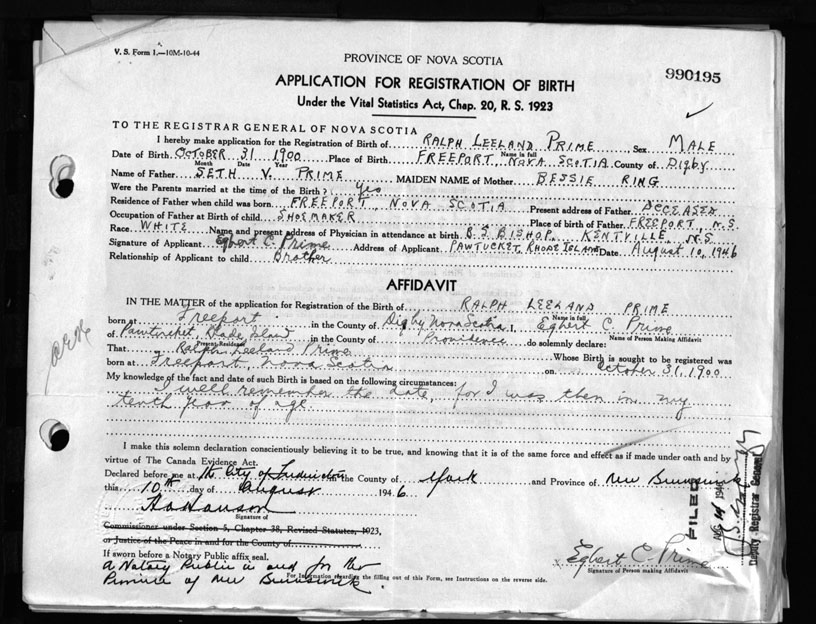 V. S. Form 1.—10M-10-44
PROVINCE OF NOVA SCOTIA
990195
APPLICATION FOR REGISTRATION OF BIRTH
Under the Vital Statistics Act, Chap. 20, R. S. 1923
TO THE REGISTRAR GENERAL OF NOVA SCOTIA
I hereby make application for the Registration of Birth of RALPH LEELAND PRIME Sex MALE
Name in full
Date of Birth OCTOBER 31 1900 Place of Birth FREEPORT, NOVA SCOTIA County of Digby
Month Date Year
Name of Father SETH V. PRIME MAIDEN NAME of Mother BESSIE RING
Were the Parents married at the time of the Birth? Yes
Residence of Father when child was born FREEPORT, NOVA SCOTIA Present address of Father DECEASED
Occupation of Father at Birth of child SHOEMAKER Place of birth of Father FREEPORT, N.S.
Race WHITE Name and present address of Physician in attendance at birth B.S. BISHOP, KENTVILLE, N.S.
Signature of Applicant Egbert C. Prime Address of Applicant PAWTUCKET, RHODE ISLAND Date August 10, 1946
Relationship of Applicant to child Brother
AFFIDAVIT
IN THE MATTER of the application for Registration of the Birth of RALPH LEELAND PRIME
Name in full
born at Freeport in the County of Digby Nova Scotia I, Egbert C. Prime
Name of Person Making Affidavit
of Pawtucket Rhode Island in the County of Providence do solemnly declare:
Present Residence
That Ralph Leeland Prime Whose Birth is sought to be registered was
born at Freeport, Nova Scotia on October 31, 1900
My knowledge of the fact and date of such Birth is based on the following circumstances:
I well remember the date, for I was then in my
tenth year of age.
I make this solemn declaration conscientiously believing it to be true, and knowing that it is of the same force and effect as if made under oath and by
virtue of The Canada Evidence Act.
Declared before me at the City of Fredericton in the County of York and Province of New Brunswick
this 10th day of August 1946
Signature of
Commissioner under Section 5, Chapter 38, Revised Statutes, 1923,
or Justice of the Peace in and for the County of
If sworn before a Notary Public affix seal.
A Notary Public in and for the
Province of New Brunswick
Egbert C. Prime
Signature of Person making Affidavit
For Information regarding the filling out of this Form, see Instructions on the reverse side.
FILED
Deputy Registrar General